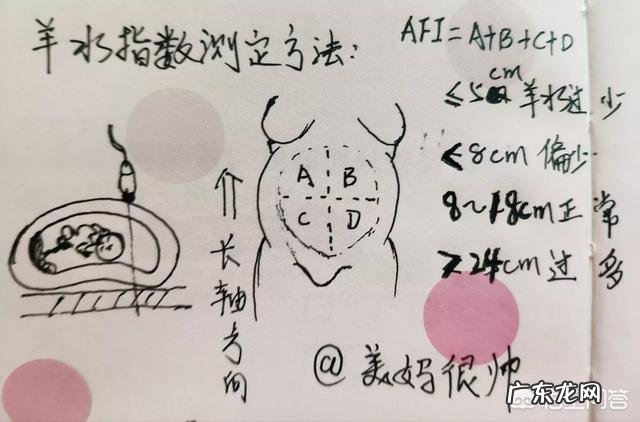 羊水指数测定方法:
AFI=A+B+C+D
≤5cm 羊水过少
<8cm 偏少
8~18cm正常
≥24cm过多
A B
C D
⇑长轴方向
@美妈很帅
广东龙网